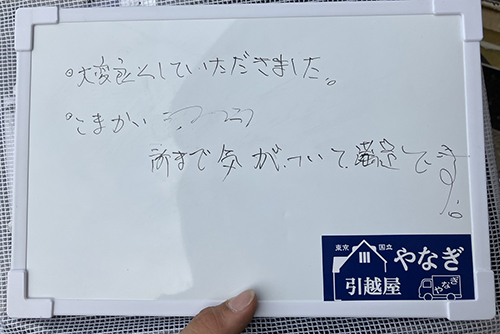 ○大変良くしていただきました。
○こまかい
所まで気がついて満足です。
東京 国立
やなぎ
引越屋
やなぎ